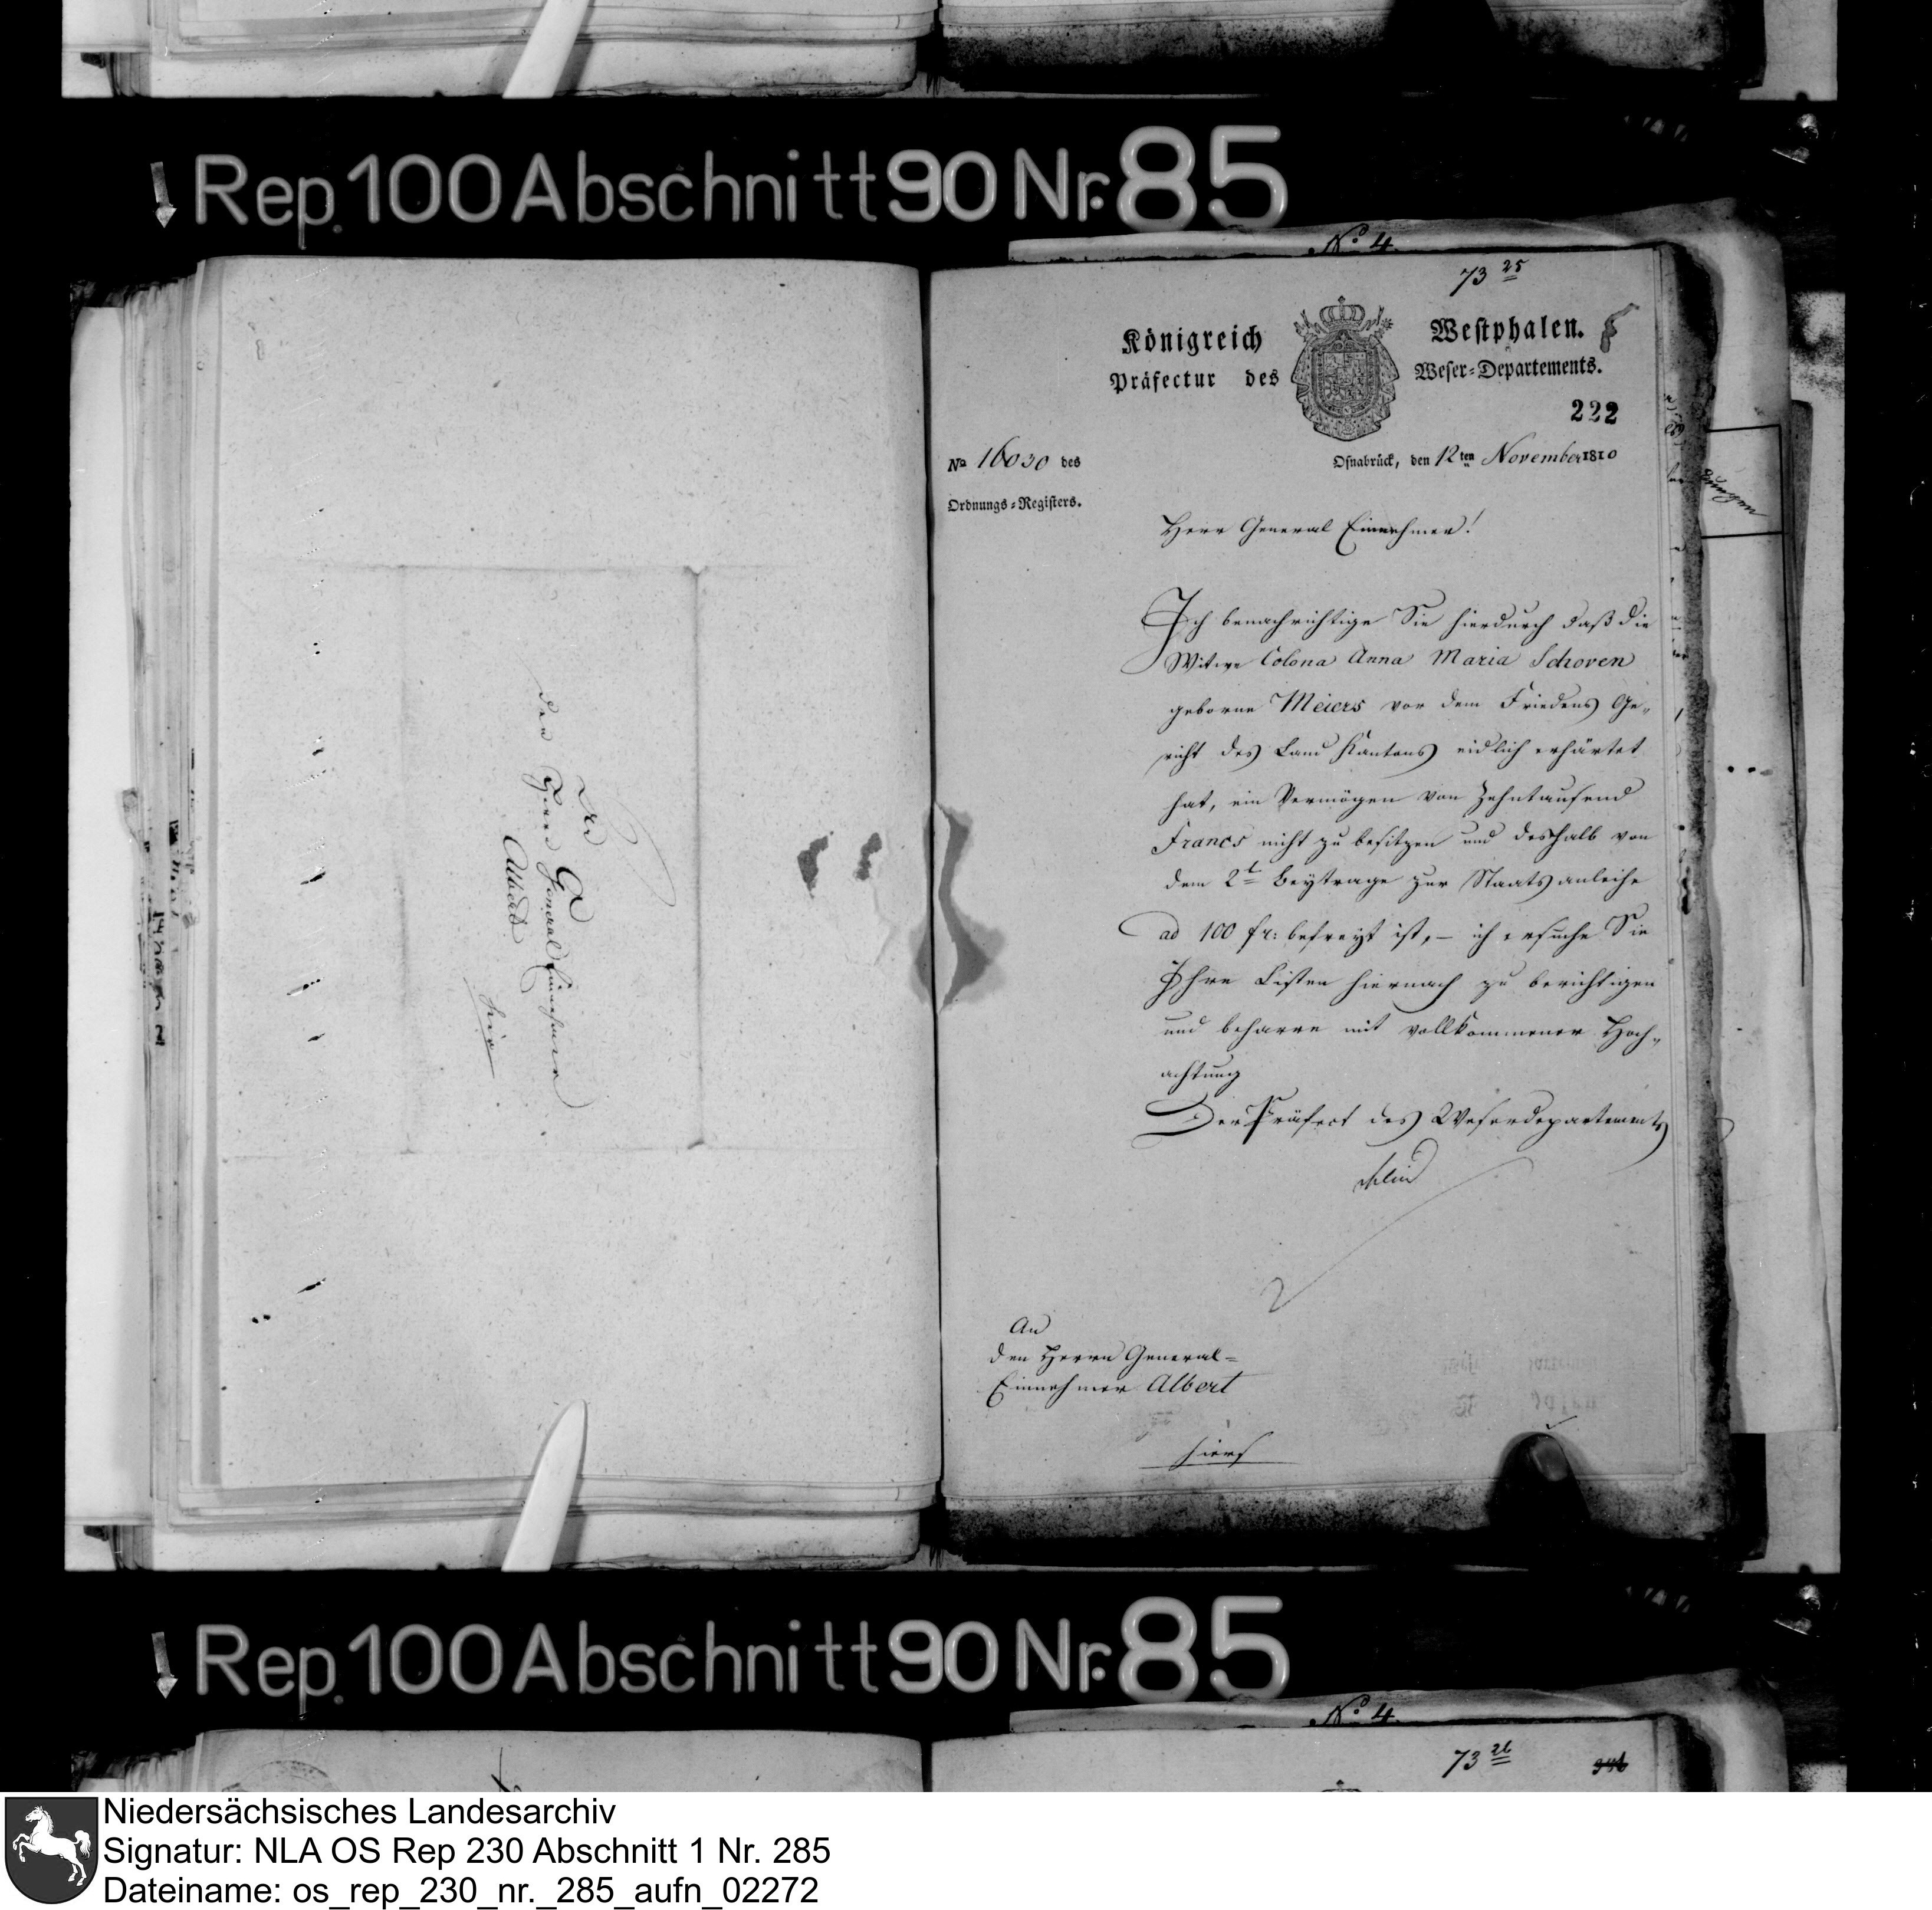 Rep. 100 Abschnitt 90 Nr. 85
No. 4.
73 25
Königreich Westphalen.
Präfectur des Weser-Departements.
222
No 16030 des
Ordnungs-Registers.
Osnabrück, den 12ten November 1810
Herr General Einnehmer!
Ich benachrichtige Sie hierdurch daß die
Witwe Colona Anna Maria Schoven
geborne Meiers vor dem Friedens Ge-
richt des Land Kantons eidlich erhärtet
hat, ein Vermögen von Zehntausend
Francs nicht zu besitzen und deshalb von
dem 2t Beytrage zur Staatsanleihe
ad 100 fr: befreyt ist, – ich ersuche Sie
Ihre Listen hiernach zu berichtigen
und beharre mit vollkommener Hoch-
achtung
Der Präfect des Weserdepartements
An
den Herrn General-
Einnehmer Albert
hier
den Herrn General Einnehmer
Albert
hier
Rep. 100 Abschnitt 90 Nr. 85
No. 4.
73 26
Niedersächsisches Landesarchiv
Signatur: NLA OS Rep 230 Abschnitt 1 Nr. 285
Dateiname: os_rep_230_nr._285_aufn_02272